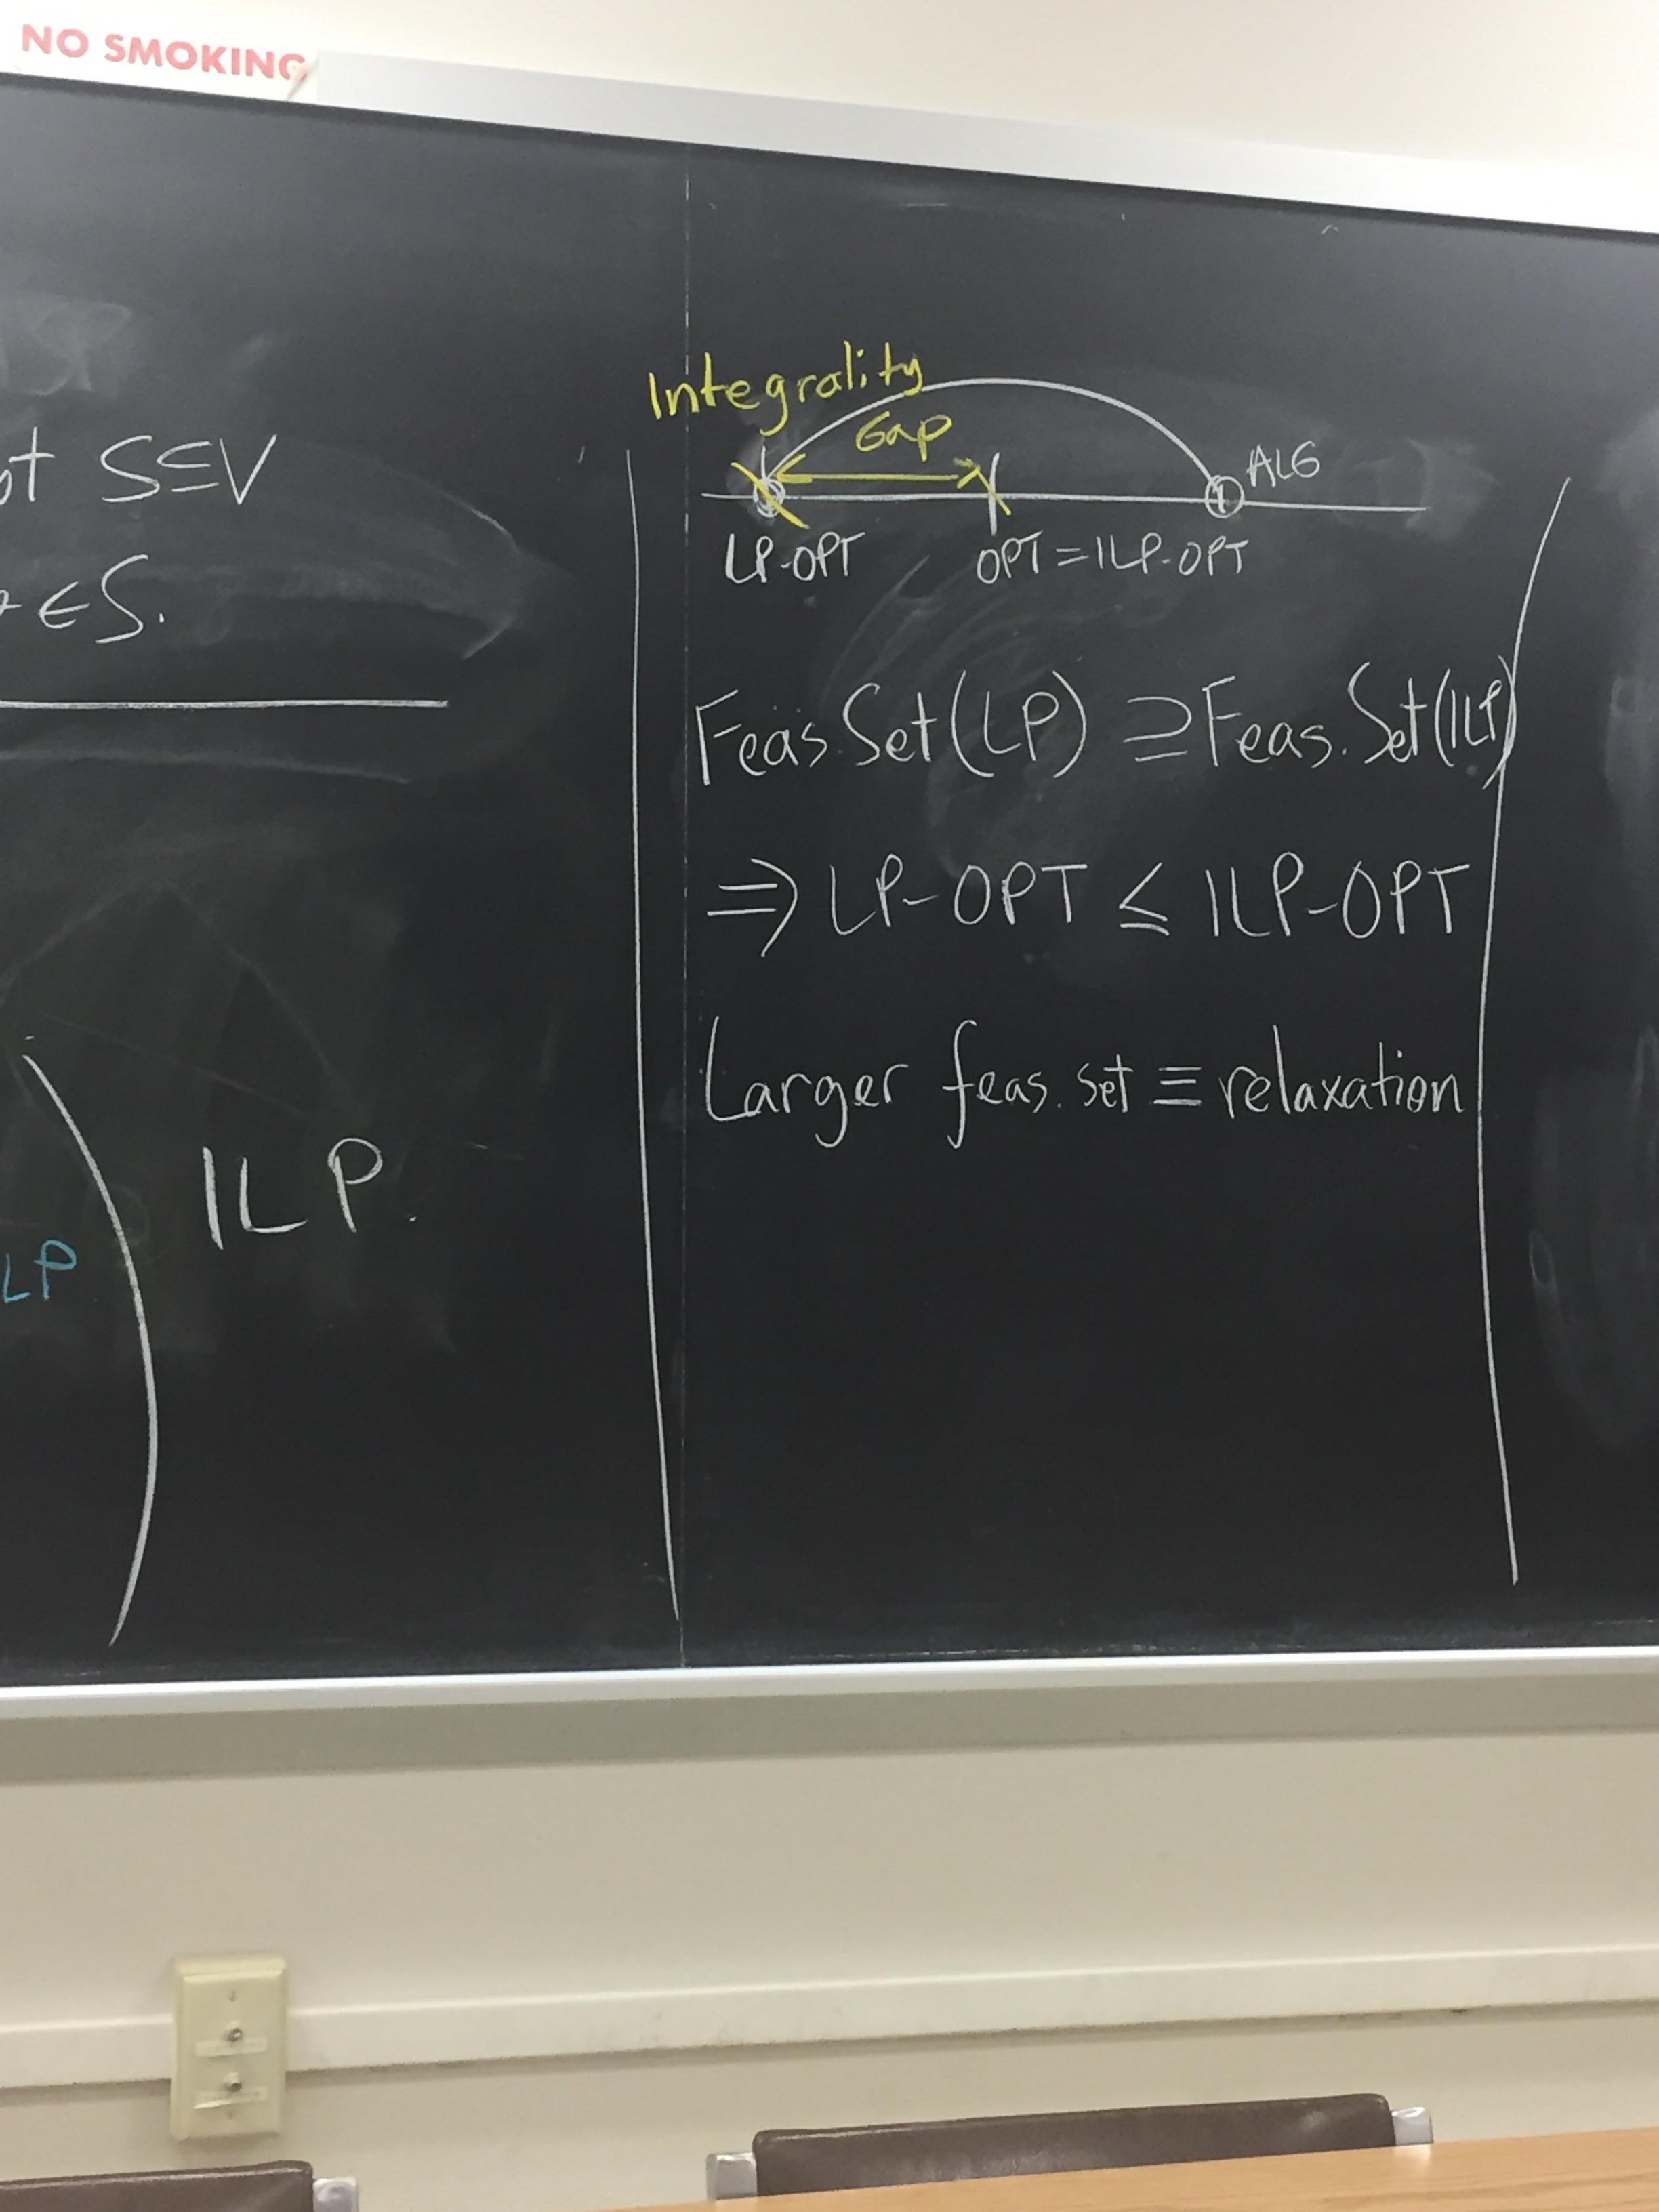 NO SMOKING
S⊆V
∈S.
ILP.
LP
Integrality
Gap
ALG
LP-OPT OPT=ILP-OPT
Feas.Set(LP) ⊇ Feas.Set(ILP)
⇒ LP-OPT ≤ ILP-OPT
Larger feas. set ≡ relaxation